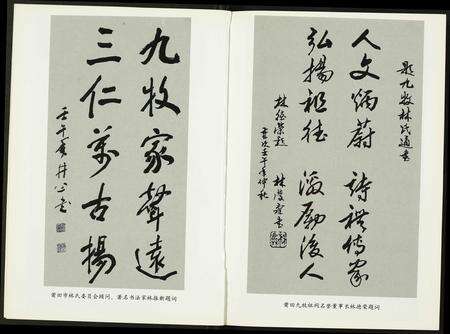 九牧家聲遠
三仁萬古揚
壬午
莆田市林氏委员会顾问、著名书法家林振新题词
題九牧林氏通書
人文炳蔚 詩禮傳家
弘揚祖德 激勵後人
林德榮題 林俊書
歲次壬午年仲秋
莆田九牧祖祠名誉董事长林德荣题词